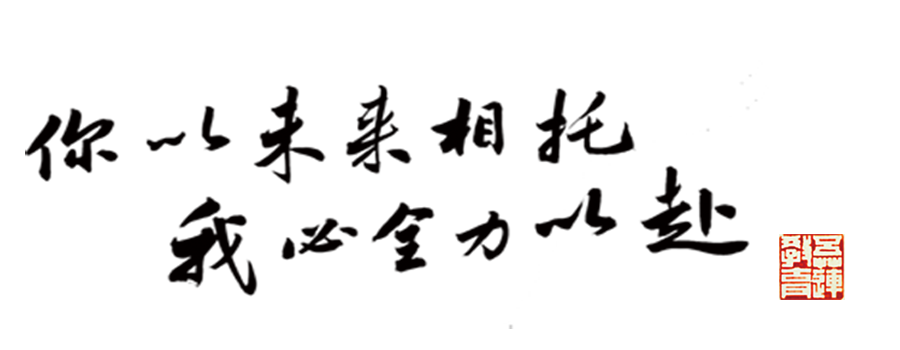 你以未来相托
我必全力以赴